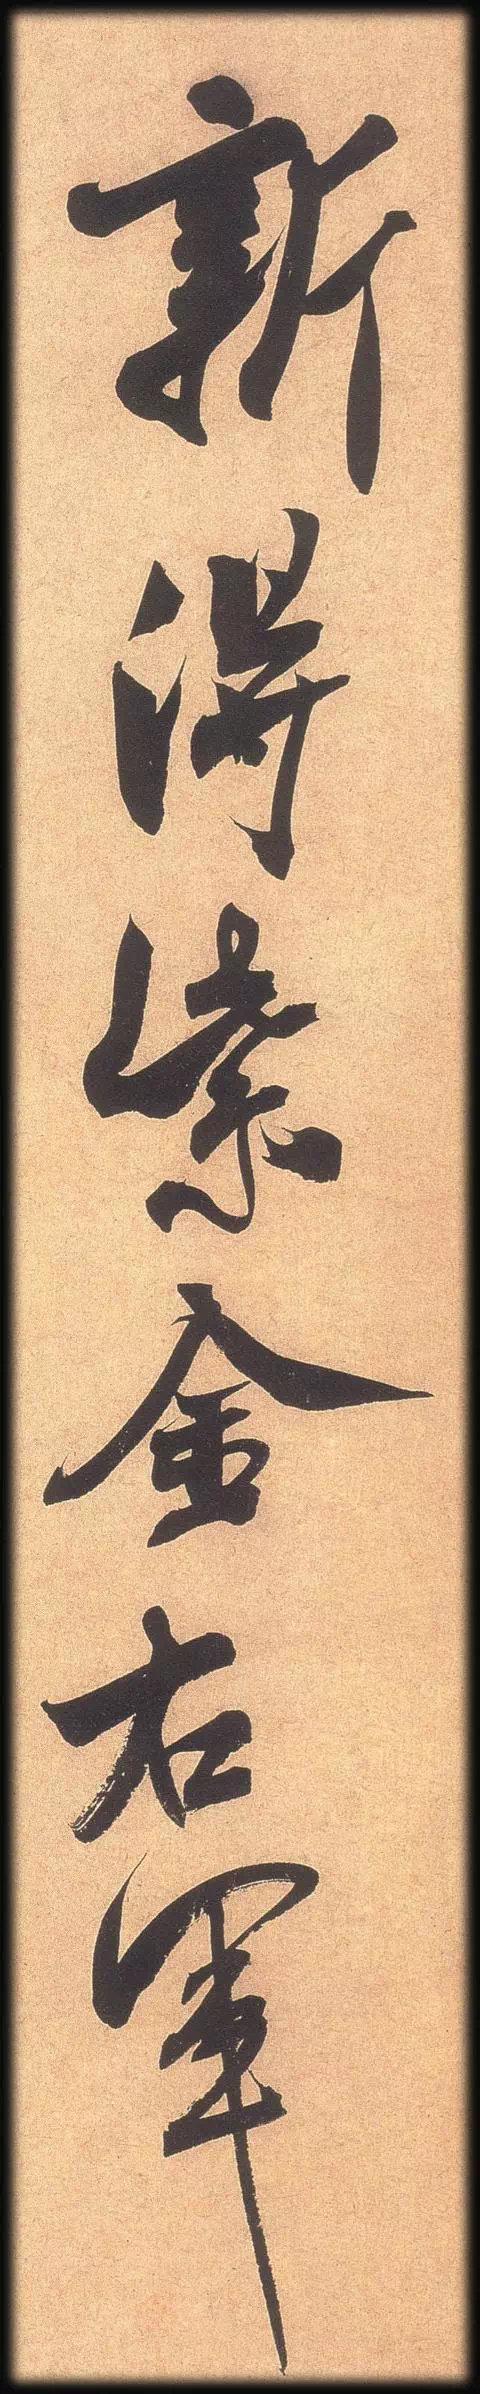 新得紫金右軍